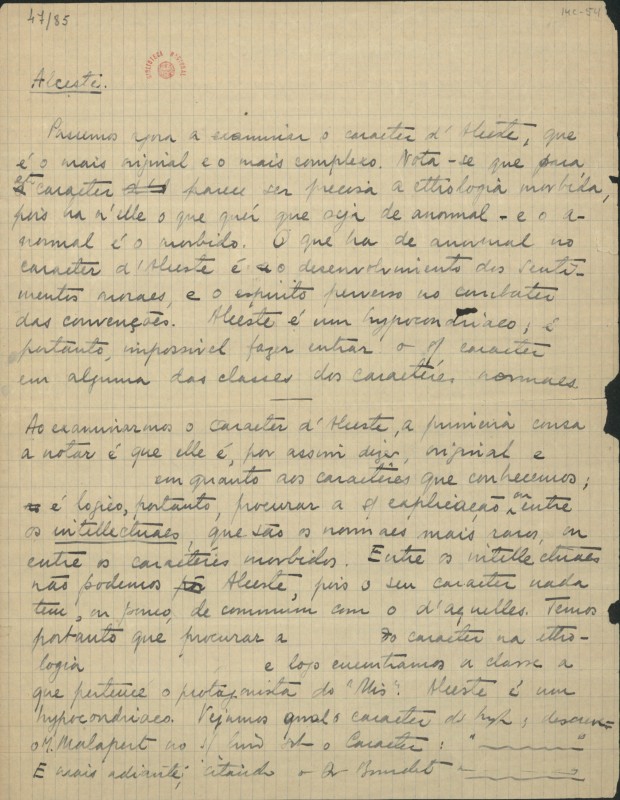 47/85
14C-54
BIBLIOTECA NACIONAL
Alceste.
Passemos agora a examinar o caracter d'Alceste, que
é o mais original e o mais complexo. Nota-se que para
este caracter parece ser precosa a ethologia morbida,
pois ha n'elle o que quer que seja de anormal - e o a-
normal é o morbido. O que ha de anormal no
caracter d'Alceste é o desenvolvimento dos senti-
mentos moraes, e o espirito perverso no combater
das convenções. Alceste é um hypocondriaco; é
portanto, impossivel fazer entrar o s/ caracter
em alguma das classes dos caractéres normaes
Ao examinarmos o caracter d'Alceste, a primeira cousa
a notar é que elle é, por assim dizer, original e
em quanto aos caractéres que conhecemos;
é logico, portanto, procurar a s/ explicação ou entre
os intellectuaes, que são os normaes mais raros, ou
entre os caractéres morbidos. Entre os intellectuaes
não podemos Alceste, pois o seu caracter nada
tem, ou pouco, de commum com o d'aquelles. Temos
portanto que procurar a do caracter na etho-
logia e logo encontramos a classe a
que pertence o protagonista do "Mis": Alceste é um
hypocondriaco. Vejamos qual o caracter do hyp; descreve-
o M. Malapert no s/ livro o Caracter: "
E mais adiante, citando o Dr "